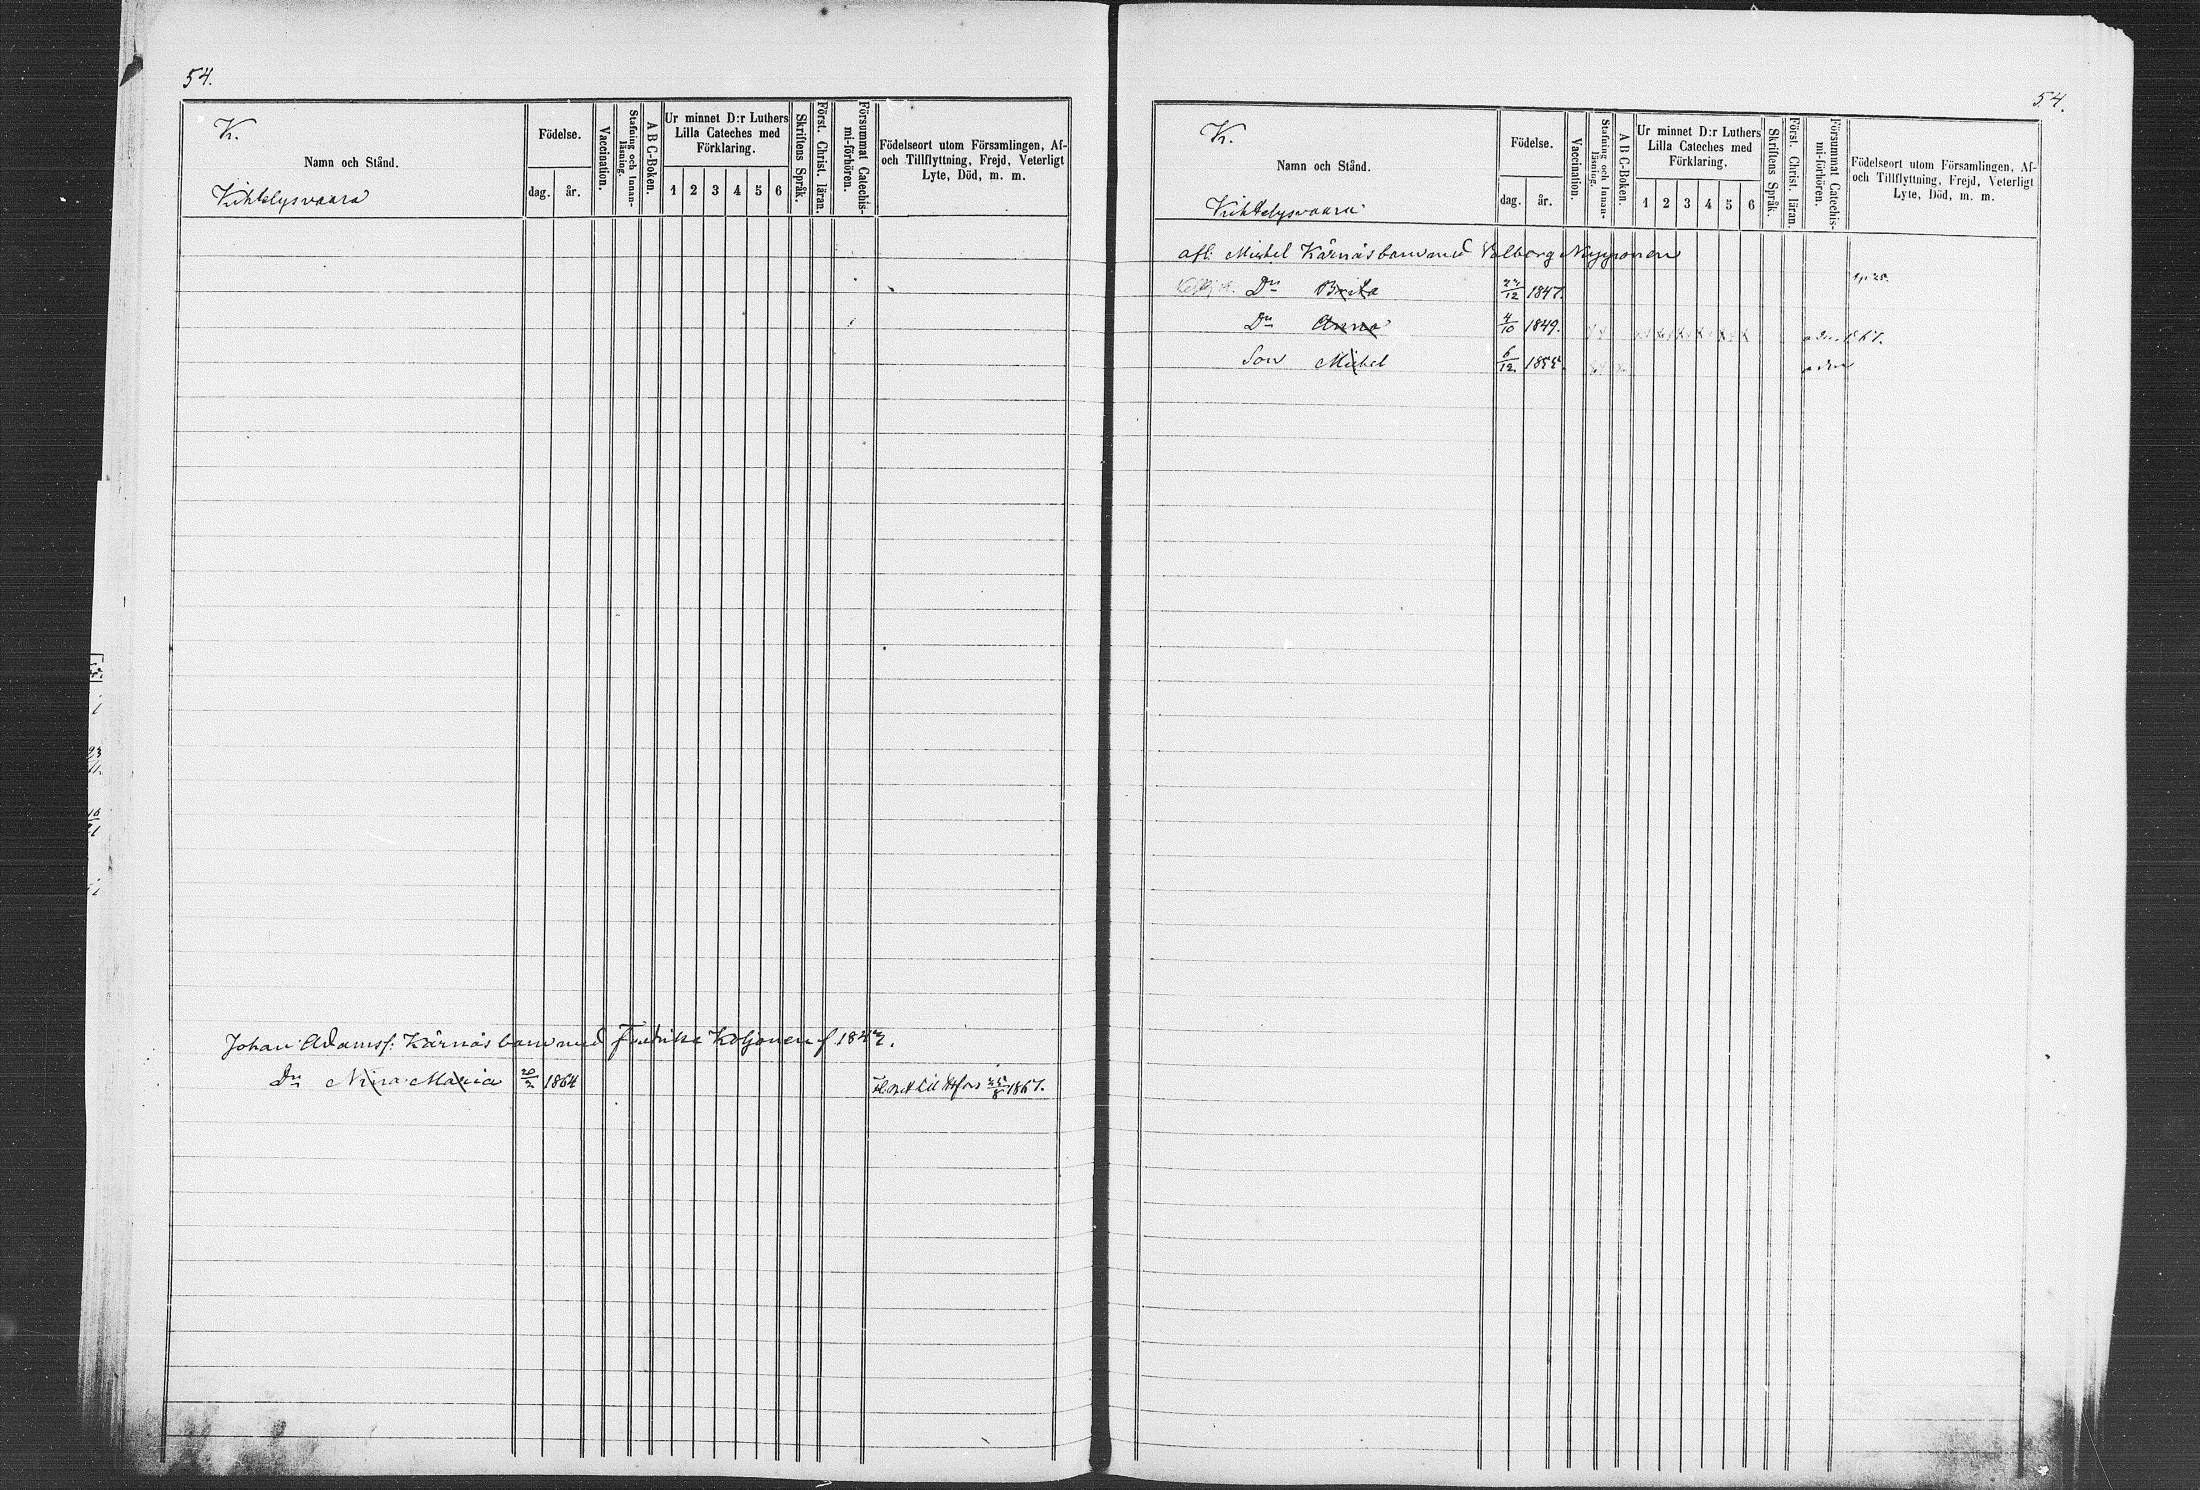 54.
K.
Namn och Stånd.
Kihtelysvaara
Födelse.
dag. år.
Vaccination.
Stafning och Innan-läsning.
A B C-Boken.
Ur minnet D:r Luthers
Lilla Cateches med
Förklaring.
1 2 3 4 5 6
Skriftens Språk.
Först. Christ. läran.
Försummat Catechis-
mi-förhören.
Födelseort utom Församlingen, Af-
och Tillflyttning, Frejd, Veterligt
Lyte, Död, m. m.
Johan Adamsf. Kärnäs barn med Fredrika Koljonen f. 1842.
Dr Nina Maria 20/2 1864 till Hfors 25/8 1867.
54.
K.
Namn och Stånd.
Kihtelysvaara
Födelse.
dag. år.
Vaccination.
Stafning och Innan-
läsning.
A B C-Boken.
Ur minnet D:r Luthers
Lilla Cateches med
Förklaring.
1 2 3 4 5 6
Skriftens Språk.
Först. Christ. läran.
Försummat Catechis-
mi-förhören.
Födelseort utom Församlingen, Af-
och Tillflyttning, Frejd, Veterligt
Lyte, Död, m. m.
afl. Michel Kärnäs barn med Valborg Nyyronen
Dr Brita 27/12 1847.
Dr Anna 4/10 1849. 1867.
Son Michel 6/12 1855.